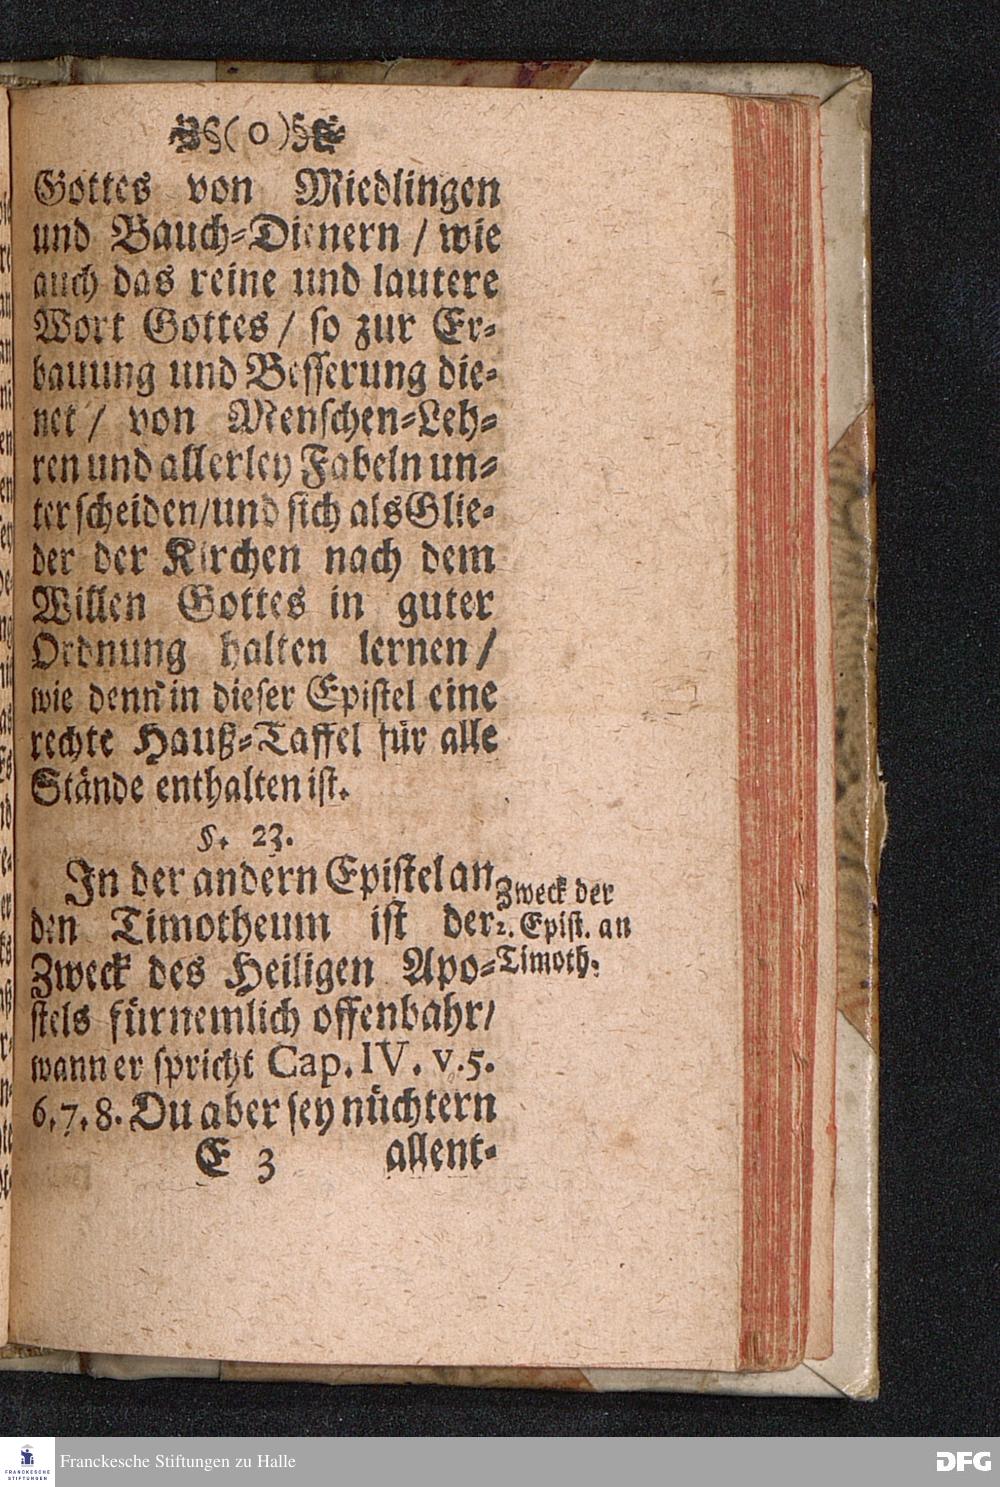 §(0)§
Gottes von Miedlingen
und Bauch-Dienern / wie
auch das reine und lautere
Wort Gottes / so zur Er-
bauung und Besserung die-
net / von Menschen-Leh-
ren und allerley Fabeln un-
terscheiden / und sich als Glie-
der der Kirchen nach dem
Willen Gottes in guter
Ordnung halten lernen /
wie denn in dieser Epistel eine
rechte Hauß-Taffel für alle
Stände enthalten ist.
§. 23.
In der andern Epistel an
den Timotheum ist der
Zweck des Heiligen Apo-
stels fürnemlich offenbahr /
wann er spricht Cap. IV. v. 5.
6. 7. 8. Du aber sey nüchtern
E 3 allent-
Zweck der
2. Epist. an
Timoth.
FRANCKESCHE
STIFTUNGEN
Franckesche Stiftungen zu Halle
DFG